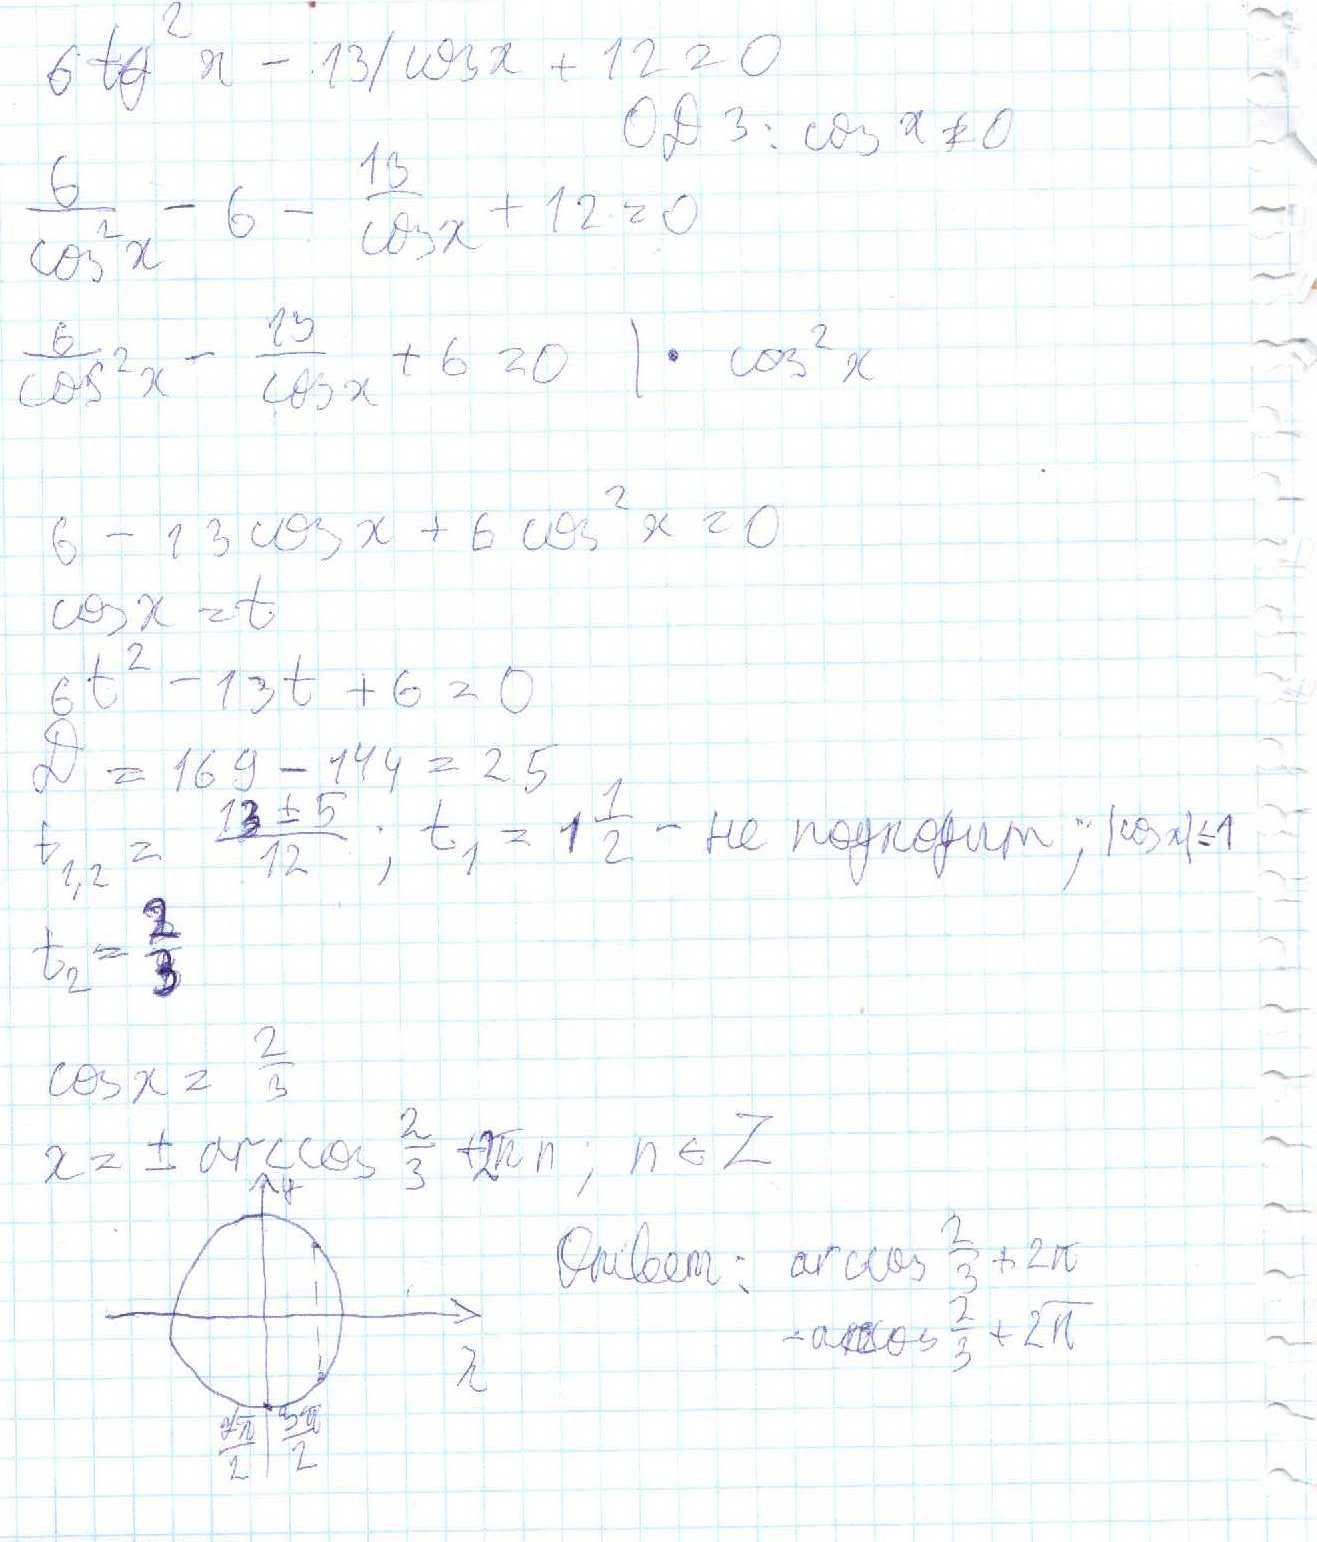 6 tg² x - 13/cos x + 12 = 0
ОДЗ: cos x ≠ 0
6/cos² x - 6 - 13/cos x + 12 = 0
6/cos² x - 13/cos x + 6 = 0 | · cos² x
6 - 13 cos x + 6 cos² x = 0
cos x = t
6t² - 13t + 6 = 0
D = 169 - 144 = 25
t₁,₂ = (13 ± 5)/12 ; t₁ = 1 1/2 - не подходит ; |cos x| ≤ 1
t₂ = 2/3
cos x = 2/3
x = ± arccos 2/3 + 2πn ; n ∈ Z
y
Ответ: arccos 2/3 + 2π
- arccos 2/3 + 2π
x
7π/2 3π/2